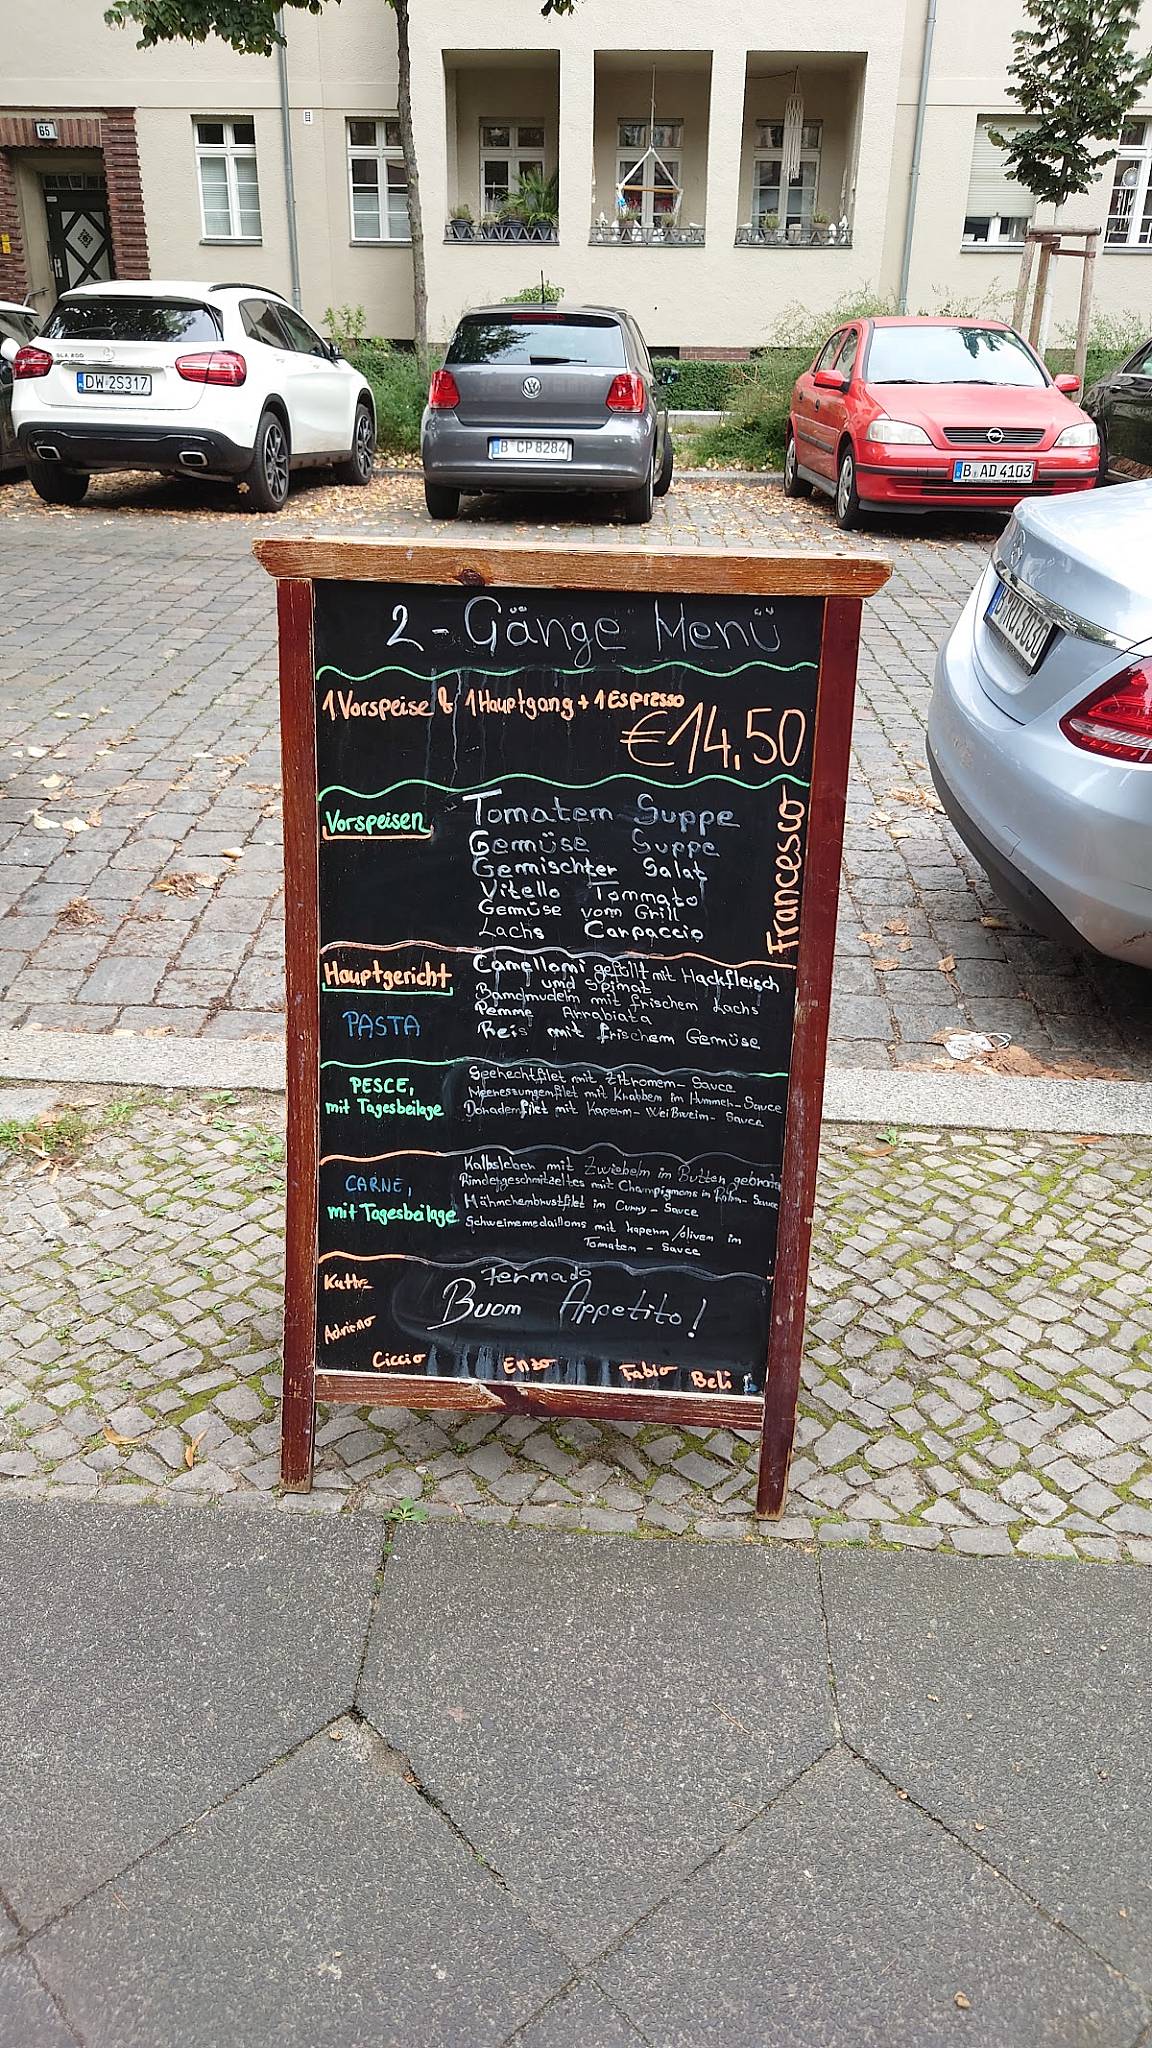 65
GLA 200
DW 2S317
B CP 8284
B AD 4103
2-Gänge Menü
1 Vorspeise & 1 Hauptgang + 1 Espresso
€14,50
Vorspeisen
Tomaten Suppe
Gemüse Suppe
Gemischter Salat
Vitello Tommato
Gemüse vom Grill
Lachs Carpaccio
Francesco
Hauptgericht
PASTA
Camellomi gefüllt mit Hackfleisch
und Spimat
Bamdmudelm mit frischem Lachs
Pemme Arrabiata
Reis mit frischem Gemüse
PESCE,
mit Tagesbeilage
Seehechtfilet mit Zitromem-Sauce
Meereszumgemfilet mit Krabbem im Hummer-Sauce
Doradenfilet mit Kaperm-Weißweim-Sauce
CARNE,
mit Tagesbeilage
Kalbsleber mit Zwiebelm im Butter gebraten
Rimdergeschmitzeltes mit Champigmoms in Rahm-Sauce
Hähmchembrustfilet im Curry-Sauce
Schweinemedailloms mit kaperm/olivem im
Tomatem-Sauce
Fermado
Buom Appetito!
Adriano
Ciccio
Enzo
Fabio
Beli